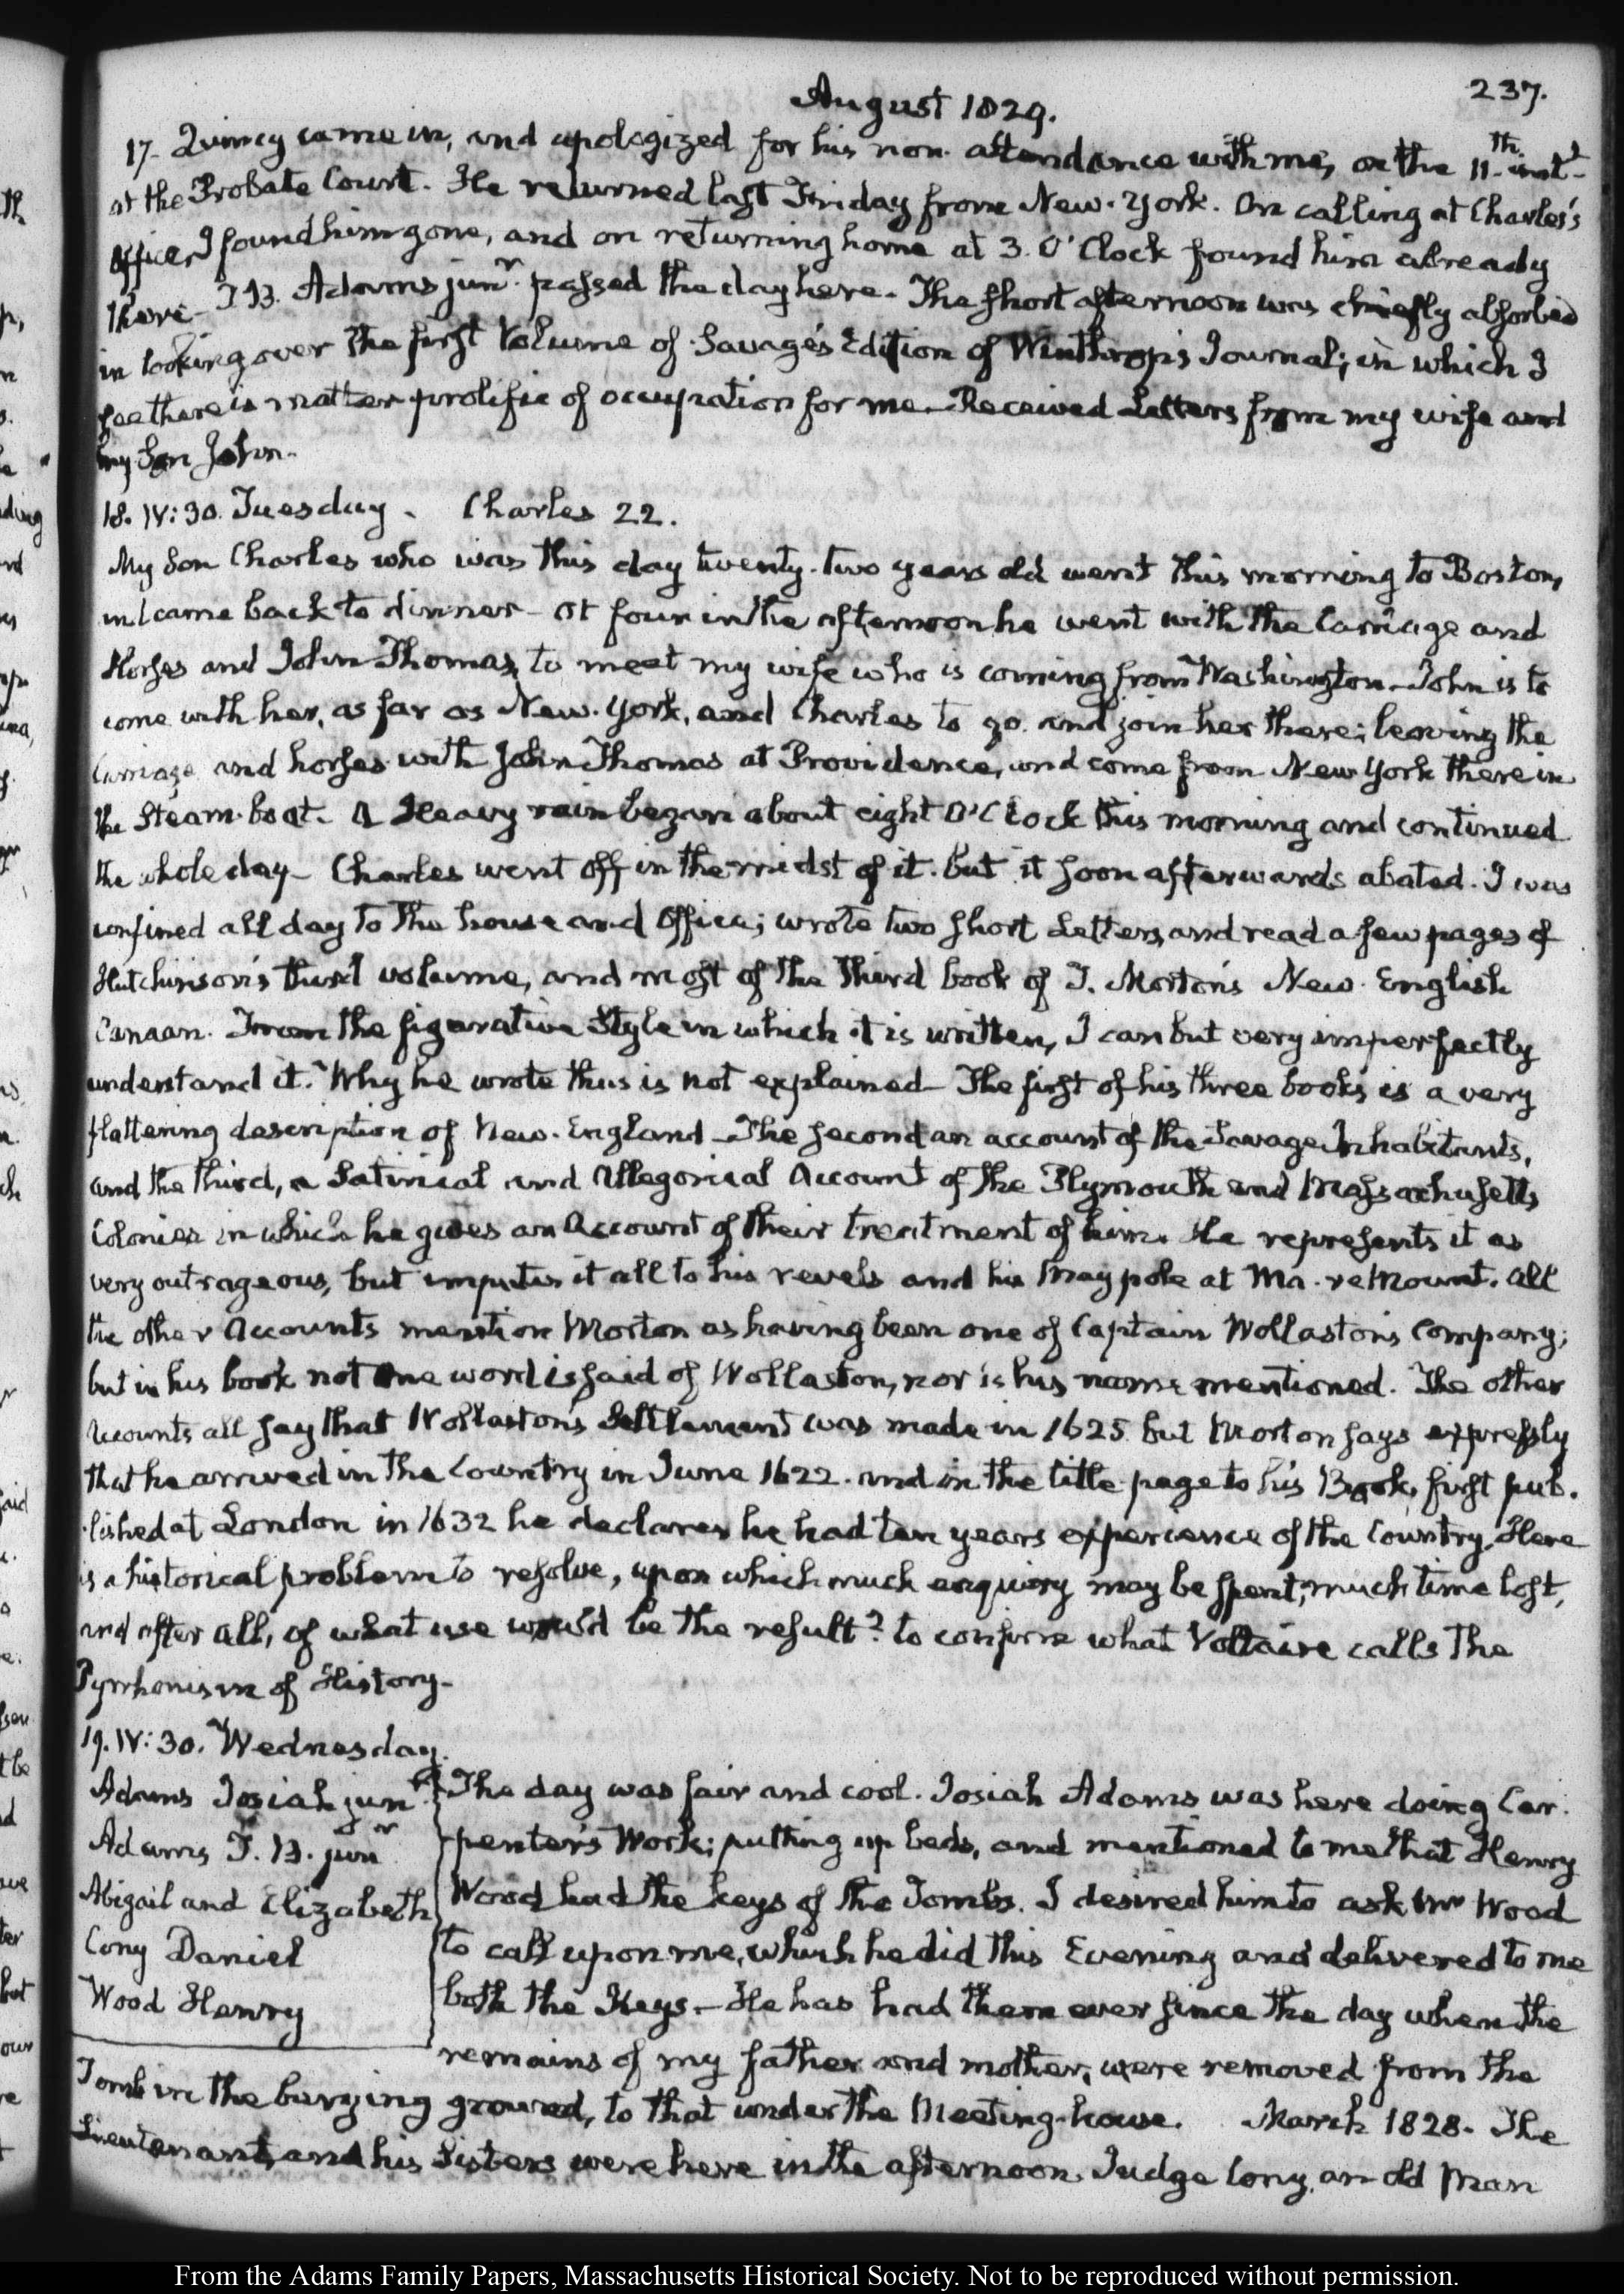 August 1829.
237.
17. Quincy came in, and apologized for his non-attendance with me, on the 11th. instt.
at the Probate Court. He returned last Friday from New-York. On calling at Charles's
Office, I found him gone, and on returning home at 3. O'Clock found him already
there- T. B. Adams junr. passed the day here- The short afternoon was chiefly absorbed
in looking over the first Volume of Savage's Edition of Winthrop's Journal; in which I
see there is matter prolific of occupation for me- Received Letters from my wife and
my Son John-
18. IV:30. Tuesday. Charles 22.
My Son Charles who was this day twenty-two years old went this morning to Boston,
and came back to dinner- At four in the afternoon he went with the Carriage and
Horses and John Thomas, to meet my wife who is coming from Washington- John is to
come with her, as far as New-York, and Charles to go and join her there; leaving the
Carriage and horses with John Thomas at Providence, and come from New York there in
the Steam-boat. A Heavy rain began about eight O'Clock this morning and continued
the whole day- Charles went off in the midst of it. But it soon afterwards abated. I was
confined all day to the house and Office; wrote two short Letters, and read a few pages of
Hutchinson's third volume, and most of the Third book of T. Morton's New English
Canaan. From the figurative Style in which it is written, I can but very imperfectly
understand it. Why he wrote thus is not explained- The first of his three books is a very
flattering description of New-England- The second an account of the Savage Inhabitants,
and the third, a Satirical and Allegorical Account of the Plymouth and Massachusetts
Colonies in which he gives an Account of their treatment of him. He represents it as
very outrageous, but imputes it all to his revels and his Maypole at Ma-re Mount. All
the other Accounts mention Morton as having been one of Captain Wollaston's Company;
but in his book not one word is said of Wollaston, nor is his name mentioned. The other
Accounts all say that Wollaston's Settlement was made in 1625 but Morton says expressly
that he arrived in the Country in June 1622. and in the title page to his Book, first pub-
-lished at London in 1632 he declares he had ten years experience of the Country. Here
is a historical problem to resolve, upon which much enquiry may be spent, much time lost,
and after all, of what use would be the result? to confirm what Voltaire calls the
Pyrrhonism of History-
19. IV:30. Wednesday.
Adams Josiah junr
Adams T. B. junr
Abigail and Elizabeth
Cony Daniel
Wood Henry
The day was fair and cool. Josiah Adams was here doing Car-
penter's Work; putting up beds, and mentioned to me that Henry
Wood had the keys of the Tombs. I desired him to ask Mr Wood
to call upon me, which he did this Evening and delivered to me
both the Keys- He has had them ever since the day when the
remains of my father and mother, were removed from the
Tomb in the burying ground, to that under the Meeting-house. March 1828. The
Lieutenant, and his Sisters were here in the afternoon. Judge Cony, an old Man
From the Adams Family Papers, Massachusetts Historical Society. Not to be reproduced without permission.